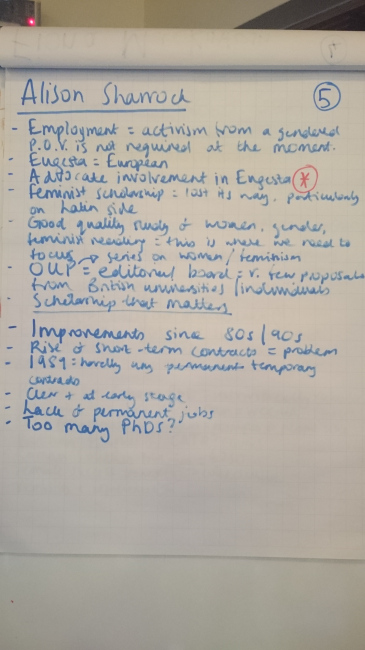 Alison Sharrock
5
- Employment = activism from a gendered
P.O.V. is not required at the moment.
- Eugesta = European
- Advocate involvement in Eugesta *
- Feminist scholarship = lost its way, particularly
on Latin side
- Good quality study of women, gender,
feminist reading = this is where we need to
focus → series on women/feminism
- OUP = editorial board = v. few proposals
from British universities/individuals
- Scholarship that matters
- Improvements since 80s/90s
- Rise of short-term contracts = problem
- 1989: hardly any permanent temporary
contracts
- at early stage
- Lack of permanent jobs
- Too many PhDs?